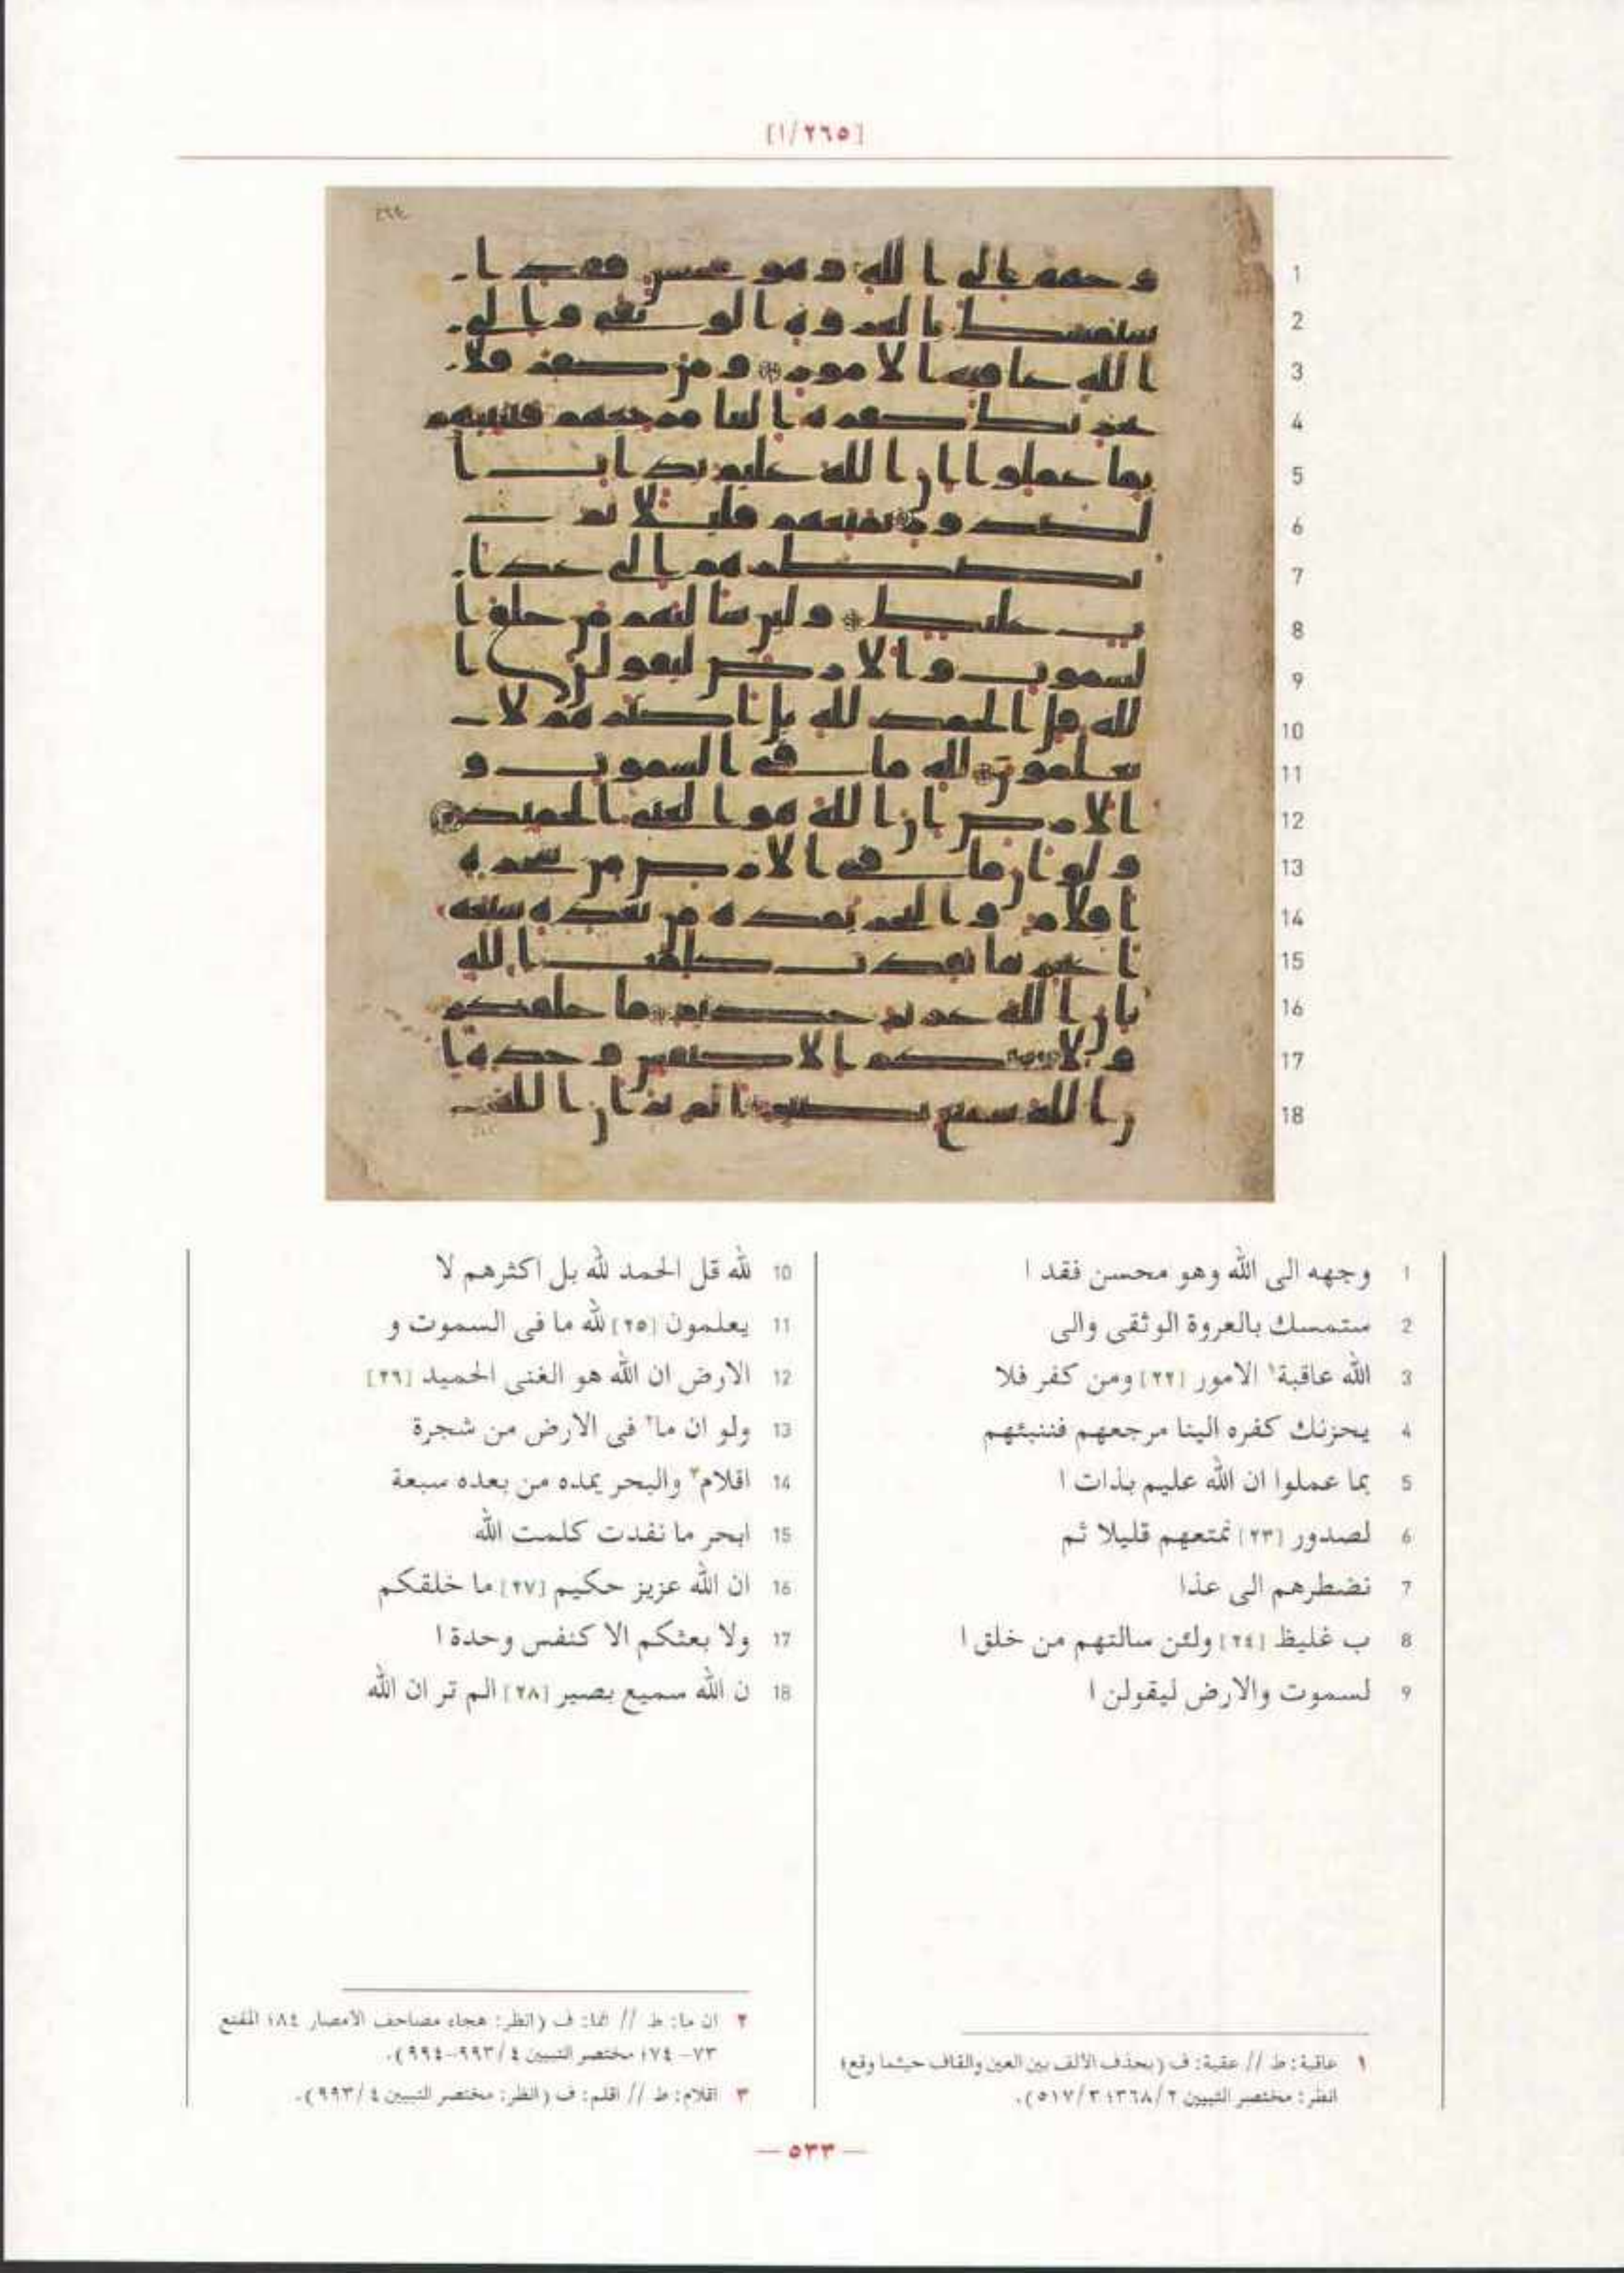 [١/٢٦٥]
1 وجهه الى الله وهو محسن فقد ا
2 ستمسك بالعروة الوثقى والى
3 الله عاقبة١ الامور [٢٢] ومن كفر فلا
4 يحزنك كفره الينا مرجعهم فننبئهم
5 بما عملوا ان الله عليم بذات ا
6 لصدور [٢٣] نمتعهم قليلا ثم
7 نضطرهم الى عذا
8 ب غليظ [٢٤] ولئن سالتهم من خلق ا
9 لسموت والارض ليقولن ا
10 لله قل الحمد لله بل اكثرهم لا
11 يعلمون [٢٥] لله ما فى السموت و
12 الارض ان الله هو الغنى الحميد [٢٦]
13 ولو ان ما٢ فى الارض من شجرة
14 اقلام٣ والبحر يمده من بعده سبعة
15 ابحر ما نفدت كلمت الله
16 ان الله عزيز حكيم [٢٧] ما خلقكم
17 ولا بعثكم الا كنفس وحدة ا
18 ن الله سميع بصير [٢٨] الم تر ان الله
١ عاقبة: ط // عقبة: ف (بحذف الألف بين العين والقاف حيثما وقع؛
انظر: مختصر التبيين ٢/٣٦٨؛ ٣/٥١٧).
٢ ان ما: ط // انما: ف (انظر: هجاء مصاحف الأمصار ٨٤؛ المقنع
٧٣-٧٤؛ مختصر التبيين ٤/٩٩٣-٩٩٤).
٣ اقلام: ط // اقلم: ف (انظر: مختصر التبيين ٤/٩٩٣).
— ٥٣٣ —